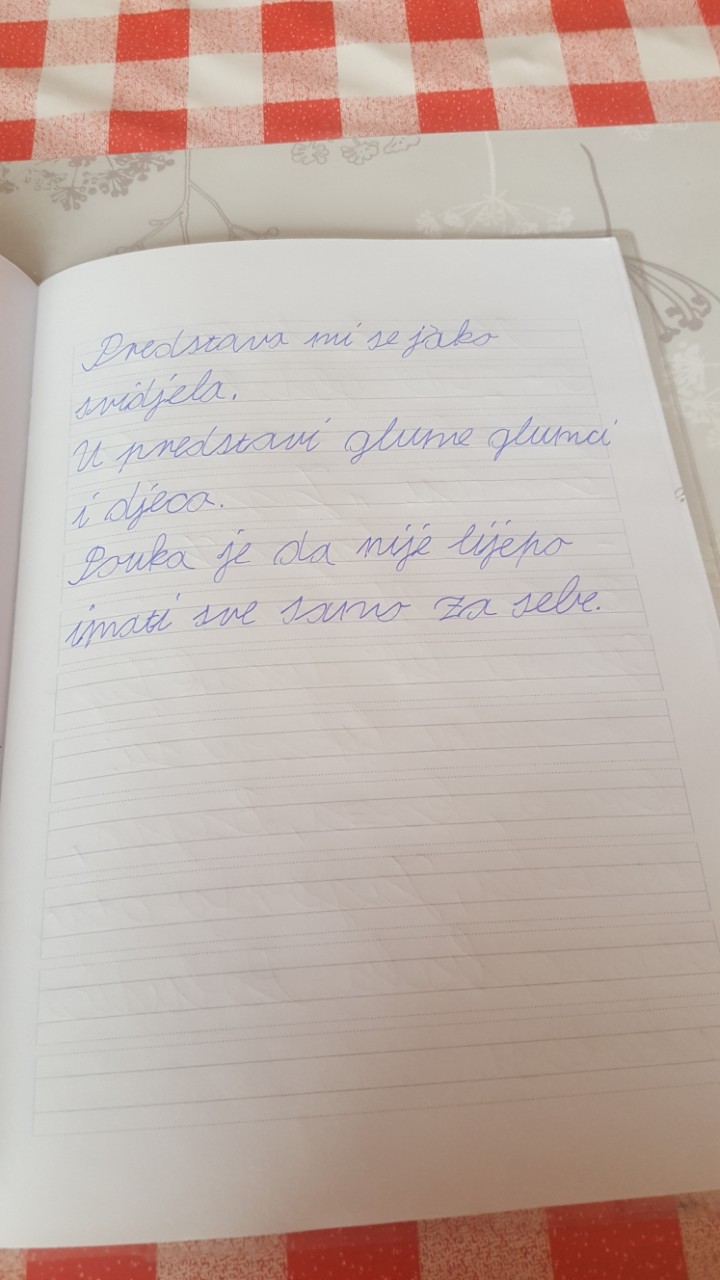 Predstava mi se jako
svidjela.
U predstavi glume glumci
i djeca.
Pouka je da nije lijepo
imati sve samo za sebe.